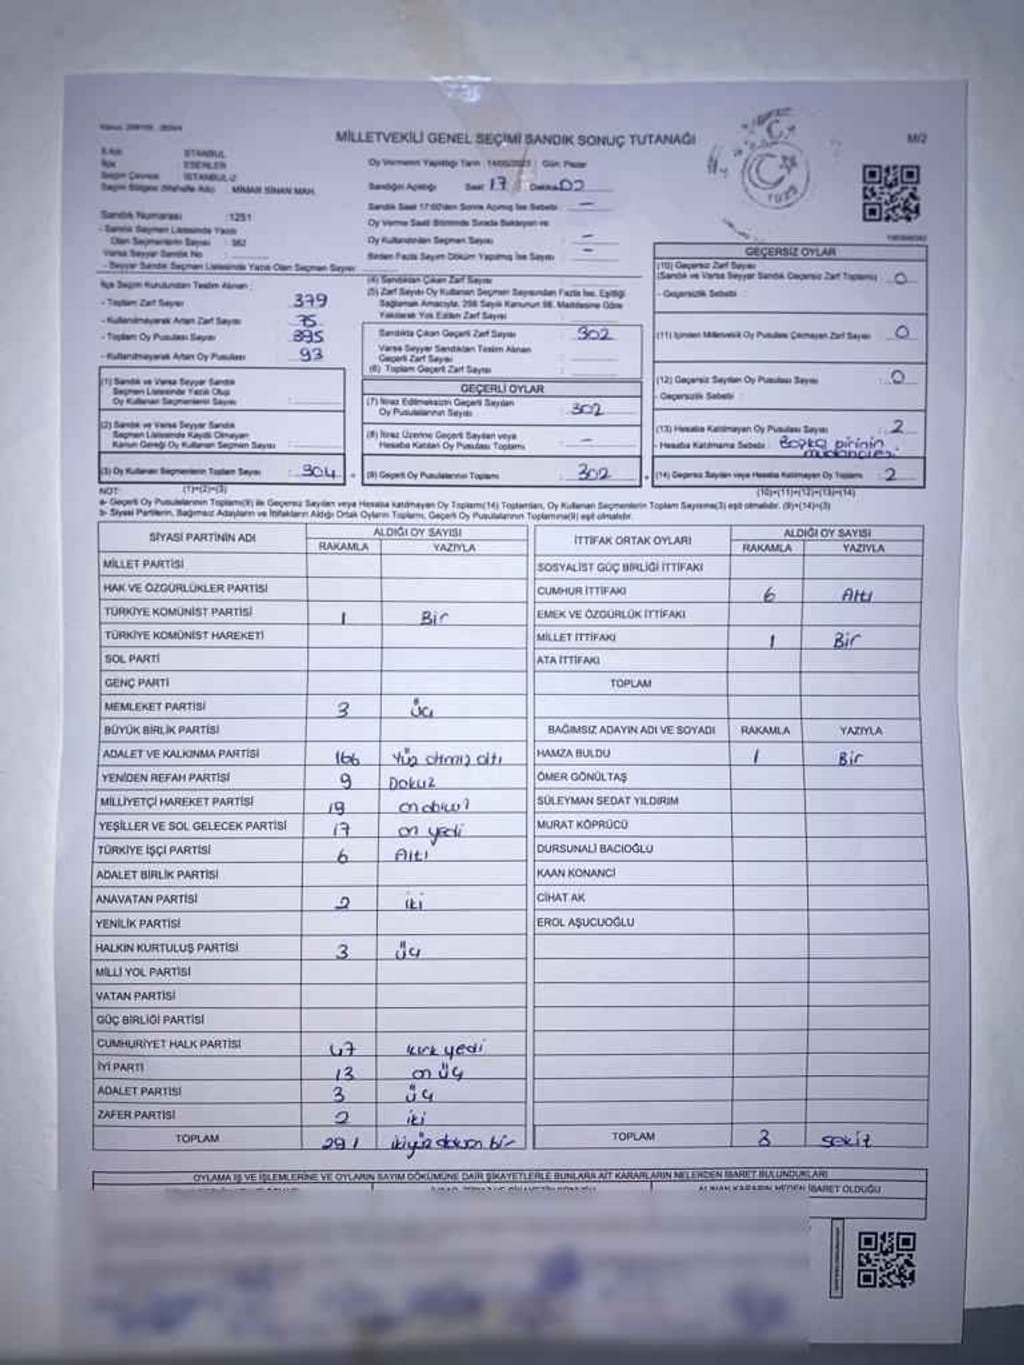 MİLLETVEKİLİ GENEL SEÇİMİ SANDIK SONUÇ TUTANAĞI
Mi/2
İli/Adı : İSTANBUL
İlçe : ESENLER
Seçim Çevresi : İSTANBUL-2
Seçim Bölgesi (Mahalle Adı) : MİMAR SİNAN MAH.
Sandık Numarası : 1251
- Sandık Seçmen Listesinde Yazılı
Olan Seçmenlerin Sayısı
Varsa Seyyar Sandık No
- Seyyar Sandık Seçmen Listesinde Yazılı Olan Seçmen Sayısı
Oy Vermenin Yapıldığı Tarih : 14/05/2023 Gün: Pazar
Sandığın Açıldığı Saat 17 Dakika 02
Sandık Saat 17:00'den Sonra Açılmış İse Sebebi : -
Oy Verme Saati Bitiminde Sırada Bekleyen ve
Oy Kullandırılan Seçmen Sayısı : -
Birden Fazla Sayım Döküm Yapılmış İse Sayısı : -
İlçe Seçim Kurulundan Teslim Alınan :
- Toplam Zarf Sayısı 379
- Kullanılmayarak Artan Zarf Sayısı 75
- Toplam Oy Pusulası Sayısı 395
- Kullanılmayarak Artan Oy Pusulası 93
(1) Sandık ve Varsa Seyyar Sandık
Seçmen Listesinde Yazılı Olup
Oy Kullanan Seçmenlerin Sayısı
(2) Sandık ve Varsa Seyyar Sandık
Seçmen Listesinde Kayıtlı Olmayan
Kanun Gereği Oy Kullanan Seçmen Sayısı
(3) Oy Kullanan Seçmenlerin Toplam Sayısı : 304
(4) Sandıktan Çıkan Zarf Sayısı
(5) Zarf Sayısı Oy Kullanan Seçmen Sayısından Fazla İse, Eşitliği
Sağlamak Amacıyla, 298 Sayılı Kanunun 98. Maddesine Göre
Yakılarak Yok Edilen Zarf Sayısı
Sandıkta Çıkan Geçerli Zarf Sayısı 302
Varsa Seyyar Sandıktan Teslim Alınan
Geçerli Zarf Sayısı
(6) Toplam Geçerli Zarf Sayısı
GEÇERLİ OYLAR
(7) İtiraz Edilmeksizin Geçerli Sayılan
Oy Pusulalarının Sayısı : 302
(8) İtiraz Üzerine Geçerli Sayılan veya
Hesaba Katılan Oy Pusulası Toplamı : -
(9) Geçerli Oy Pusulalarının Toplamı : 302
GEÇERSİZ OYLAR
(10) Geçersiz Zarf Sayısı
(Sandık ve Varsa Seyyar Sandık Geçersiz Zarf Toplamı) : 0
- Geçersizlik Sebebi :
(11) İçinden Milletvekili Oy Pusulası Çıkmayan Zarf Sayısı : 0
(12) Geçersiz Sayılan Oy Pusulası Sayısı : 0
- Geçersizlik Sebebi
(13) Hesaba Katılmayan Oy Pusulası Sayısı : 2
- Hesaba Katılmama Sebebi :
(14) Geçersiz Sayılan veya Hesaba Katılmayan Oy Toplamı : 2
NOT: (1)+(2)=(3)
(10)+(11)+(12)+(13)=(14)
a- Geçerli Oy Pusulalarının Toplamı(9) ile Geçersiz Sayılan veya Hesaba katılmayan Oy Toplamı(14) Toplamları, Oy Kullanan Seçmenlerin Toplam Sayısına(3) eşit olmalıdır. (9)+(14)=(3)
b- Siyasi Partilerin, Bağımsız Adayların ve İttifakların Aldığı Ortak Oyların Toplamı, Geçerli Oy Pusulalarının Toplamına(9) eşit olmalıdır.
SİYASİ PARTİNİN ADI ALDIĞI OY SAYISI
RAKAMLA YAZIYLA
MİLLET PARTİSİ
HAK VE ÖZGÜRLÜKLER PARTİSİ
TÜRKİYE KOMÜNİST PARTİSİ 1 Bir
TÜRKİYE KOMÜNİST HAREKETİ
SOL PARTİ
GENÇ PARTİ
MEMLEKET PARTİSİ 3 üç
BÜYÜK BİRLİK PARTİSİ
ADALET VE KALKINMA PARTİSİ 166 Yüz altmış altı
YENİDEN REFAH PARTİSİ 9 Dokuz
MİLLİYETÇİ HAREKET PARTİSİ 19 on dokuz
YEŞİLLER VE SOL GELECEK PARTİSİ 17 on yedi
TÜRKİYE İŞÇİ PARTİSİ 6 Altı
ADALET BİRLİK PARTİSİ
ANAVATAN PARTİSİ 2 iki
YENİLİK PARTİSİ
HALKIN KURTULUŞ PARTİSİ 3 üç
MİLLİ YOL PARTİSİ
VATAN PARTİSİ
GÜÇ BİRLİĞİ PARTİSİ
CUMHURİYET HALK PARTİSİ 47 kırk yedi
İYİ PARTİ 13 on üç
ADALET PARTİSİ 3 üç
ZAFER PARTİSİ 2 iki
TOPLAM 291 ikiyüz doksan bir
İTTİFAK ORTAK OYLARI ALDIĞI OY SAYISI
RAKAMLA YAZIYLA
SOSYALİST GÜÇ BİRLİĞİ İTTİFAKI
CUMHUR İTTİFAKI 6 Altı
EMEK VE ÖZGÜRLÜK İTTİFAKI
MİLLET İTTİFAKI 1 Bir
ATA İTTİFAKI
TOPLAM
BAĞIMSIZ ADAYIN ADI VE SOYADI RAKAMLA YAZIYLA
HAMZA BULDU 1 Bir
ÖMER GÖNÜLTAŞ
SÜLEYMAN SEDAT YILDIRIM
MURAT KÖPRÜCÜ
DURSUNALİ BACIOĞLU
KAAN KONANCI
CİHAT AK
EROL AŞUCUOĞLU
TOPLAM 8 sekiz
OYLAMA İŞ VE İŞLEMLERİNE VE OYLARIN SAYIM DÖKÜMÜNE DAİR ŞİKAYETLERLE BUNLARA AİT KARARLARIN NELERDEN İBARET BULUNDUKLARI
ALINAN KARARIN NEDEN İBARET OLDUĞU